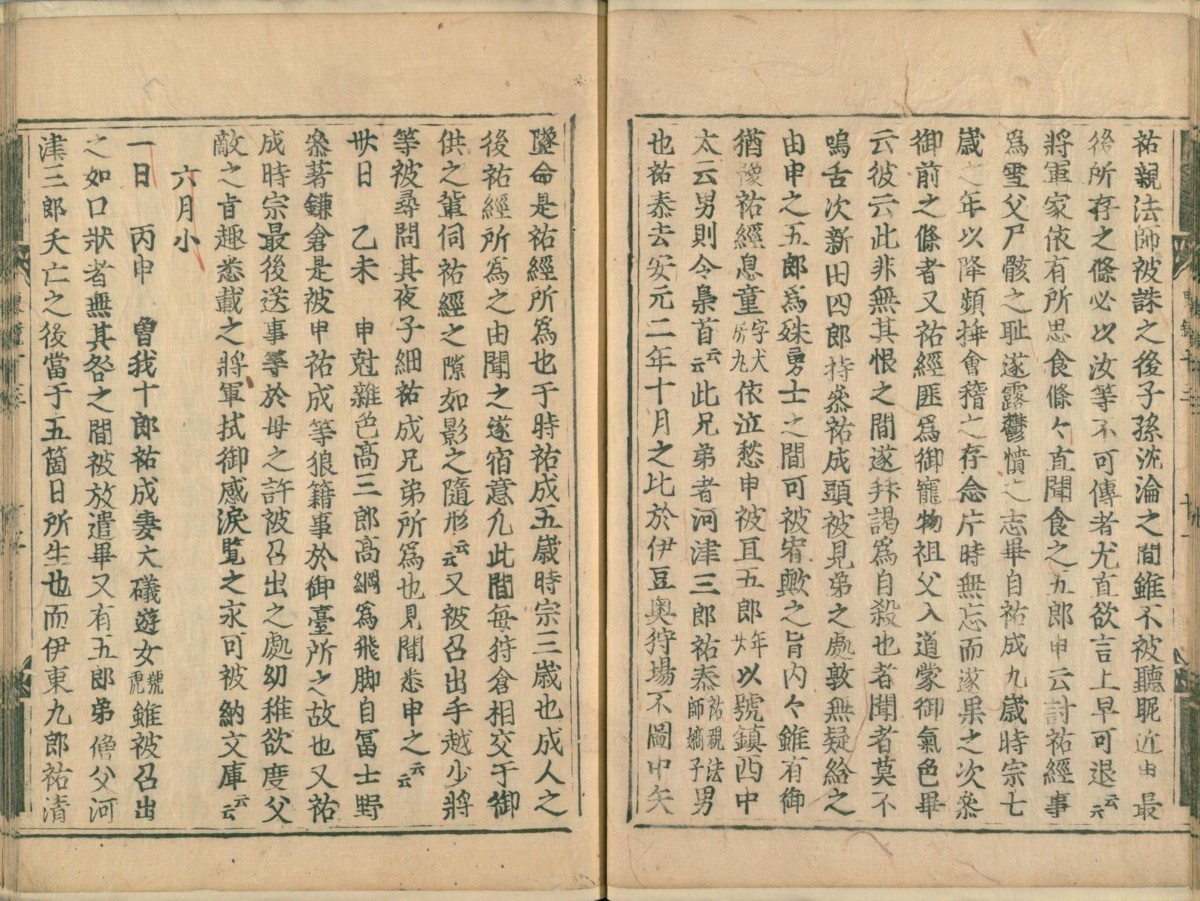 祐親法師被誅之後子孫沈淪之間雖不被聽眤近由最
後所存之條必以汝等不可傳者尤直欲言上早可退云云
將軍家依有所思食條々直聞食之五郎申云討祐經事
爲雪父尸骸之耻遂露鬱憤之志畢自祐成九歳時宗七
歳之年以降頻揷會稽之存念片時無忘而遂果之次參
御前之條者又祐經匪爲御寵物祖父入道蒙御氣色畢
云彼云此非無其恨之間遂拜謁爲自殺也者聞者莫不
鳴舌次新田四郎持參祐成頭被見弟之處敢無疑給之
由申之五郎爲殊勇士之間可被宥歟之旨内々雖有御
猶豫祐經息童字犬房九依泣愁申被亘五郎年廾以號鎮西中
太云男則令梟首云云此兄弟者河津三郎祐泰祐親法師嫡子男
也祐泰去安元二年十月之比於伊豆奥狩場不圖中矢
墜命是祐經所爲也于時祐成五歳時宗三歳也成人之
後祐經所爲之由聞之遂宿意凢此間毎狩倉相交于御
供之輩伺祐經之隙如影之隨形云云又被召出手越少將
等被尋問其夜子細祐成兄弟所爲也見聞悉申之云云
卅日　乙未　申尅雜色髙三郎高綱爲飛脚自冨士野
參著鎌倉是被申祐成等狼籍事於御臺所之故也又祐
成時宗最後送事等於母之許被召出之處幼稚欲度父
敵之旨趣悉載之將軍拭御感涙覧之永可被納文庫云云
六月小
一日　丙申　曽我十郎祐成妻大礒遊女號虎雖被召出
之如口狀者無其咎之間被放遣畢又有五郎弟僧父河
津三郎夭亡之後當于五箇日所生也而伊東九郎祐清